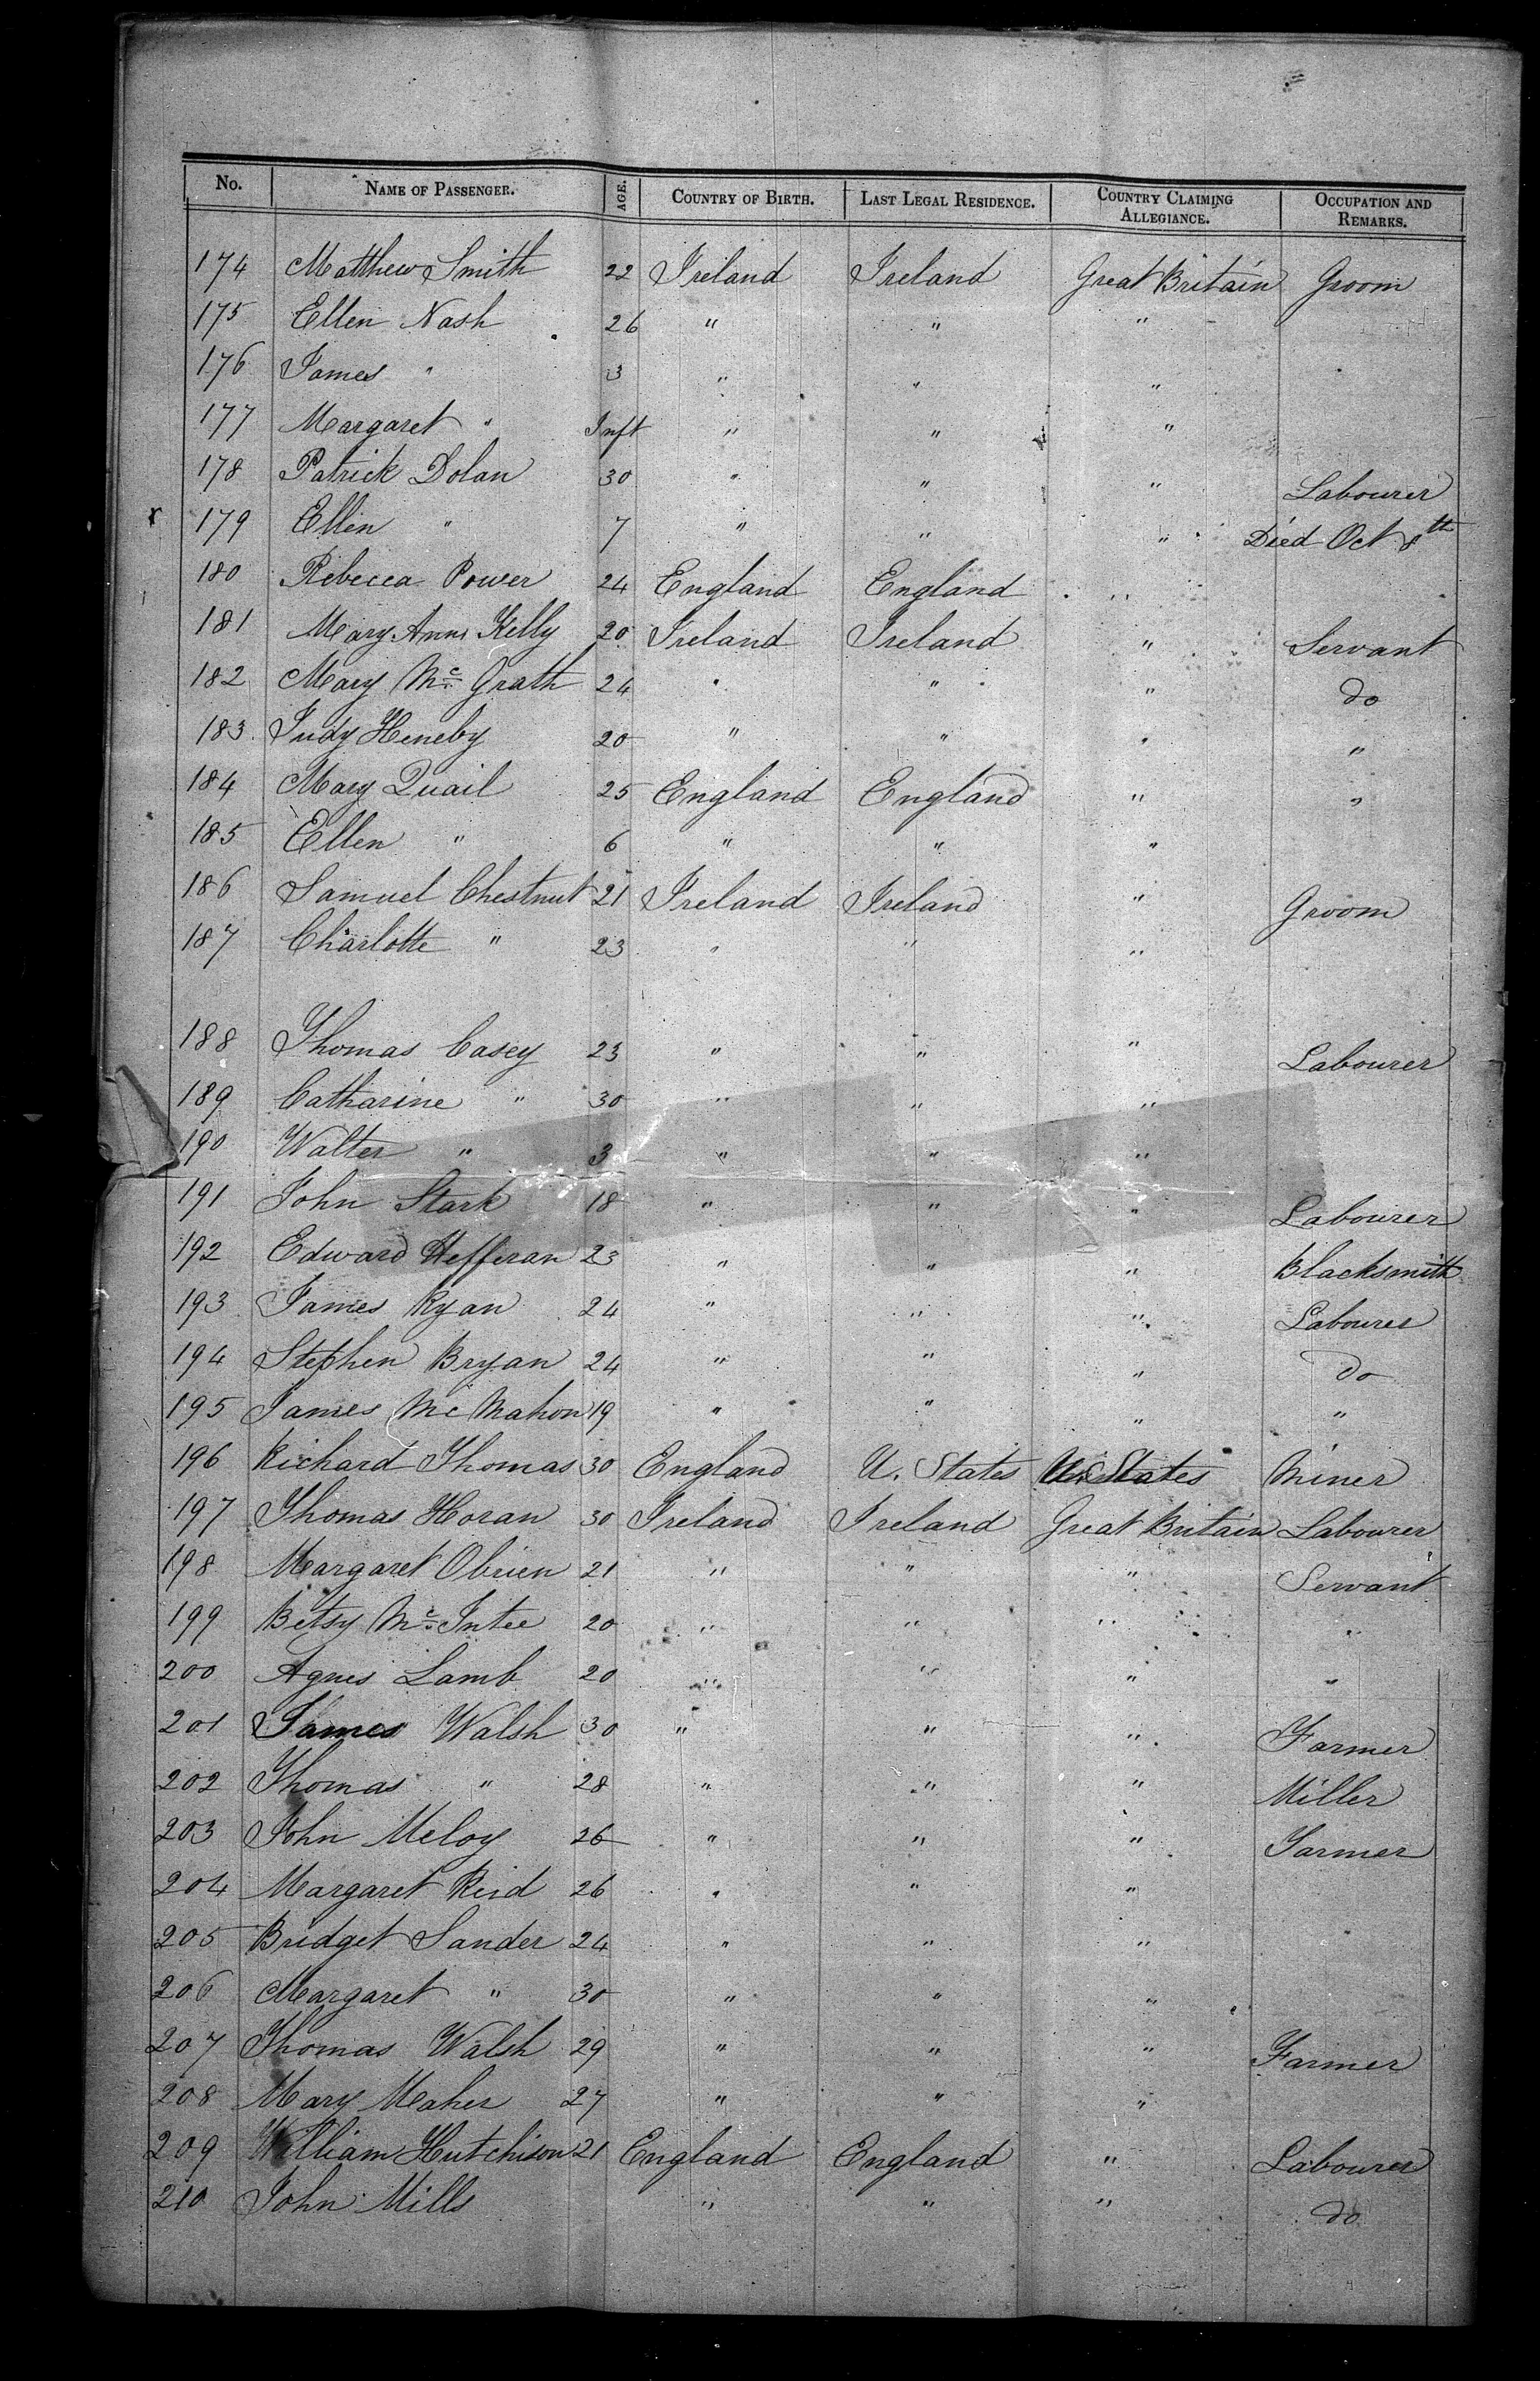 No. NAME OF PASSENGER. AGE. COUNTRY OF BIRTH. LAST LEGAL RESIDENCE. COUNTRY CLAIMING ALLEGIANCE. OCCUPATION AND REMARKS.
174 Matthew Smith 22 Ireland Ireland Great Britain Groom
175 Ellen Nash 26 " " "
176 James " 3 " " "
177 Margaret " Inft " " "
178 Patrick Dolan 30 " " " Labourer
x 179 Ellen " 7 " " " Died Oct 8th
180 Rebecca Power 24 England England "
181 Mary Ann Kelly 20 Ireland Ireland " Servant
182 Mary Mc Grath 24 " " " do
183 Judy Heneby 20 " " " "
184 Mary Quail 25 England England " "
185 Ellen " 6 " " "
186 Samuel Chestnut 21 Ireland Ireland " Groom
187 Charlotte " 23 " " "
188 Thomas Casey 23 " " " Labourer
189 Catharine " 30 " " "
190 Walter " 3 " " "
191 John Stark 18 " " " Labourer
192 Edward Hefferan 23 " " " Blacksmith
193 James Ryan 24 " " " Labourer
194 Stephen Bryan 24 " " " do
195 James Mc Mahon 19 " " " "
196 Richard Thomas 30 England U. States U. States Miner
197 Thomas Horan 30 Ireland Ireland Great Britain Labourer
198 Margaret Obrien 21 " " " Servant
199 Betsy Mc Intee 20 " " " "
200 Agnes Lamb 20 " " " "
201 James Walsh 30 " " " Farmer
202 Thomas " 28 " " " Miller
203 John Meloy 26 " " " Farmer
204 Margaret Reid 26 " " "
205 Bridget Sander 24 " " "
206 Margaret " 30 " " "
207 Thomas Walsh 29 " " " Farmer
208 Mary Maher 27 " " "
209 William Hutchison 21 England England " Labourer
210 John Mills " " " do